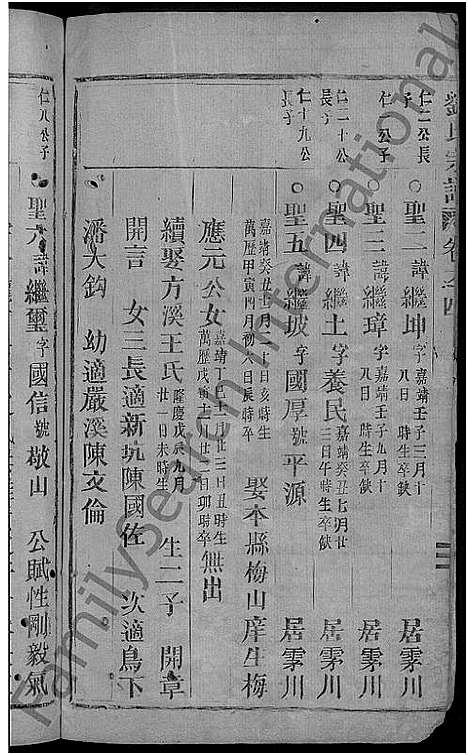 劉氏宗譜 卷之四
仁二公長子
聖二 諱繼坤 字 嘉靖壬子三月十八日 時生卒缺 居雩川
仁 公子
聖三 諱繼璋 字 嘉靖壬子九月十八日 時生卒缺 居雩川
仁二十公長子
聖四 諱繼土 字養民 嘉靖癸丑七月廿三日午時生卒缺 居雩川
仁十九公長子
聖五 諱繼坡 字國厚 號平源 居雩川
嘉靖癸丑十二月十日亥時生
萬歷甲寅四月初六日辰時卒 娶本縣梅山庠生梅
應元公女 嘉靖丁巳十二月廿三日丑時生
萬歷戊寅十二月廿二日卯時卒 無出
續娶方溪王氏 隆慶戊辰九月廿一日未時生 生二子 開章
開言 女三長適新坑陳國佐 次適鳥下
潘大鈎 幼適嚴溪陳文倫
仁八公子
聖六 諱繼璽 字國信 號敬山 公賦性剛毅氣
FamilySearch International